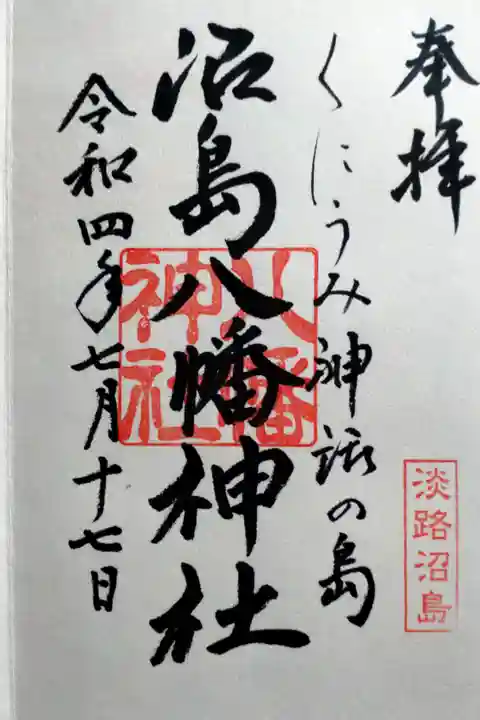 奉拝
淡路沼島
くにうみ神話の島
沼島八幡神社
八幡
神社
令和四年七月十七日